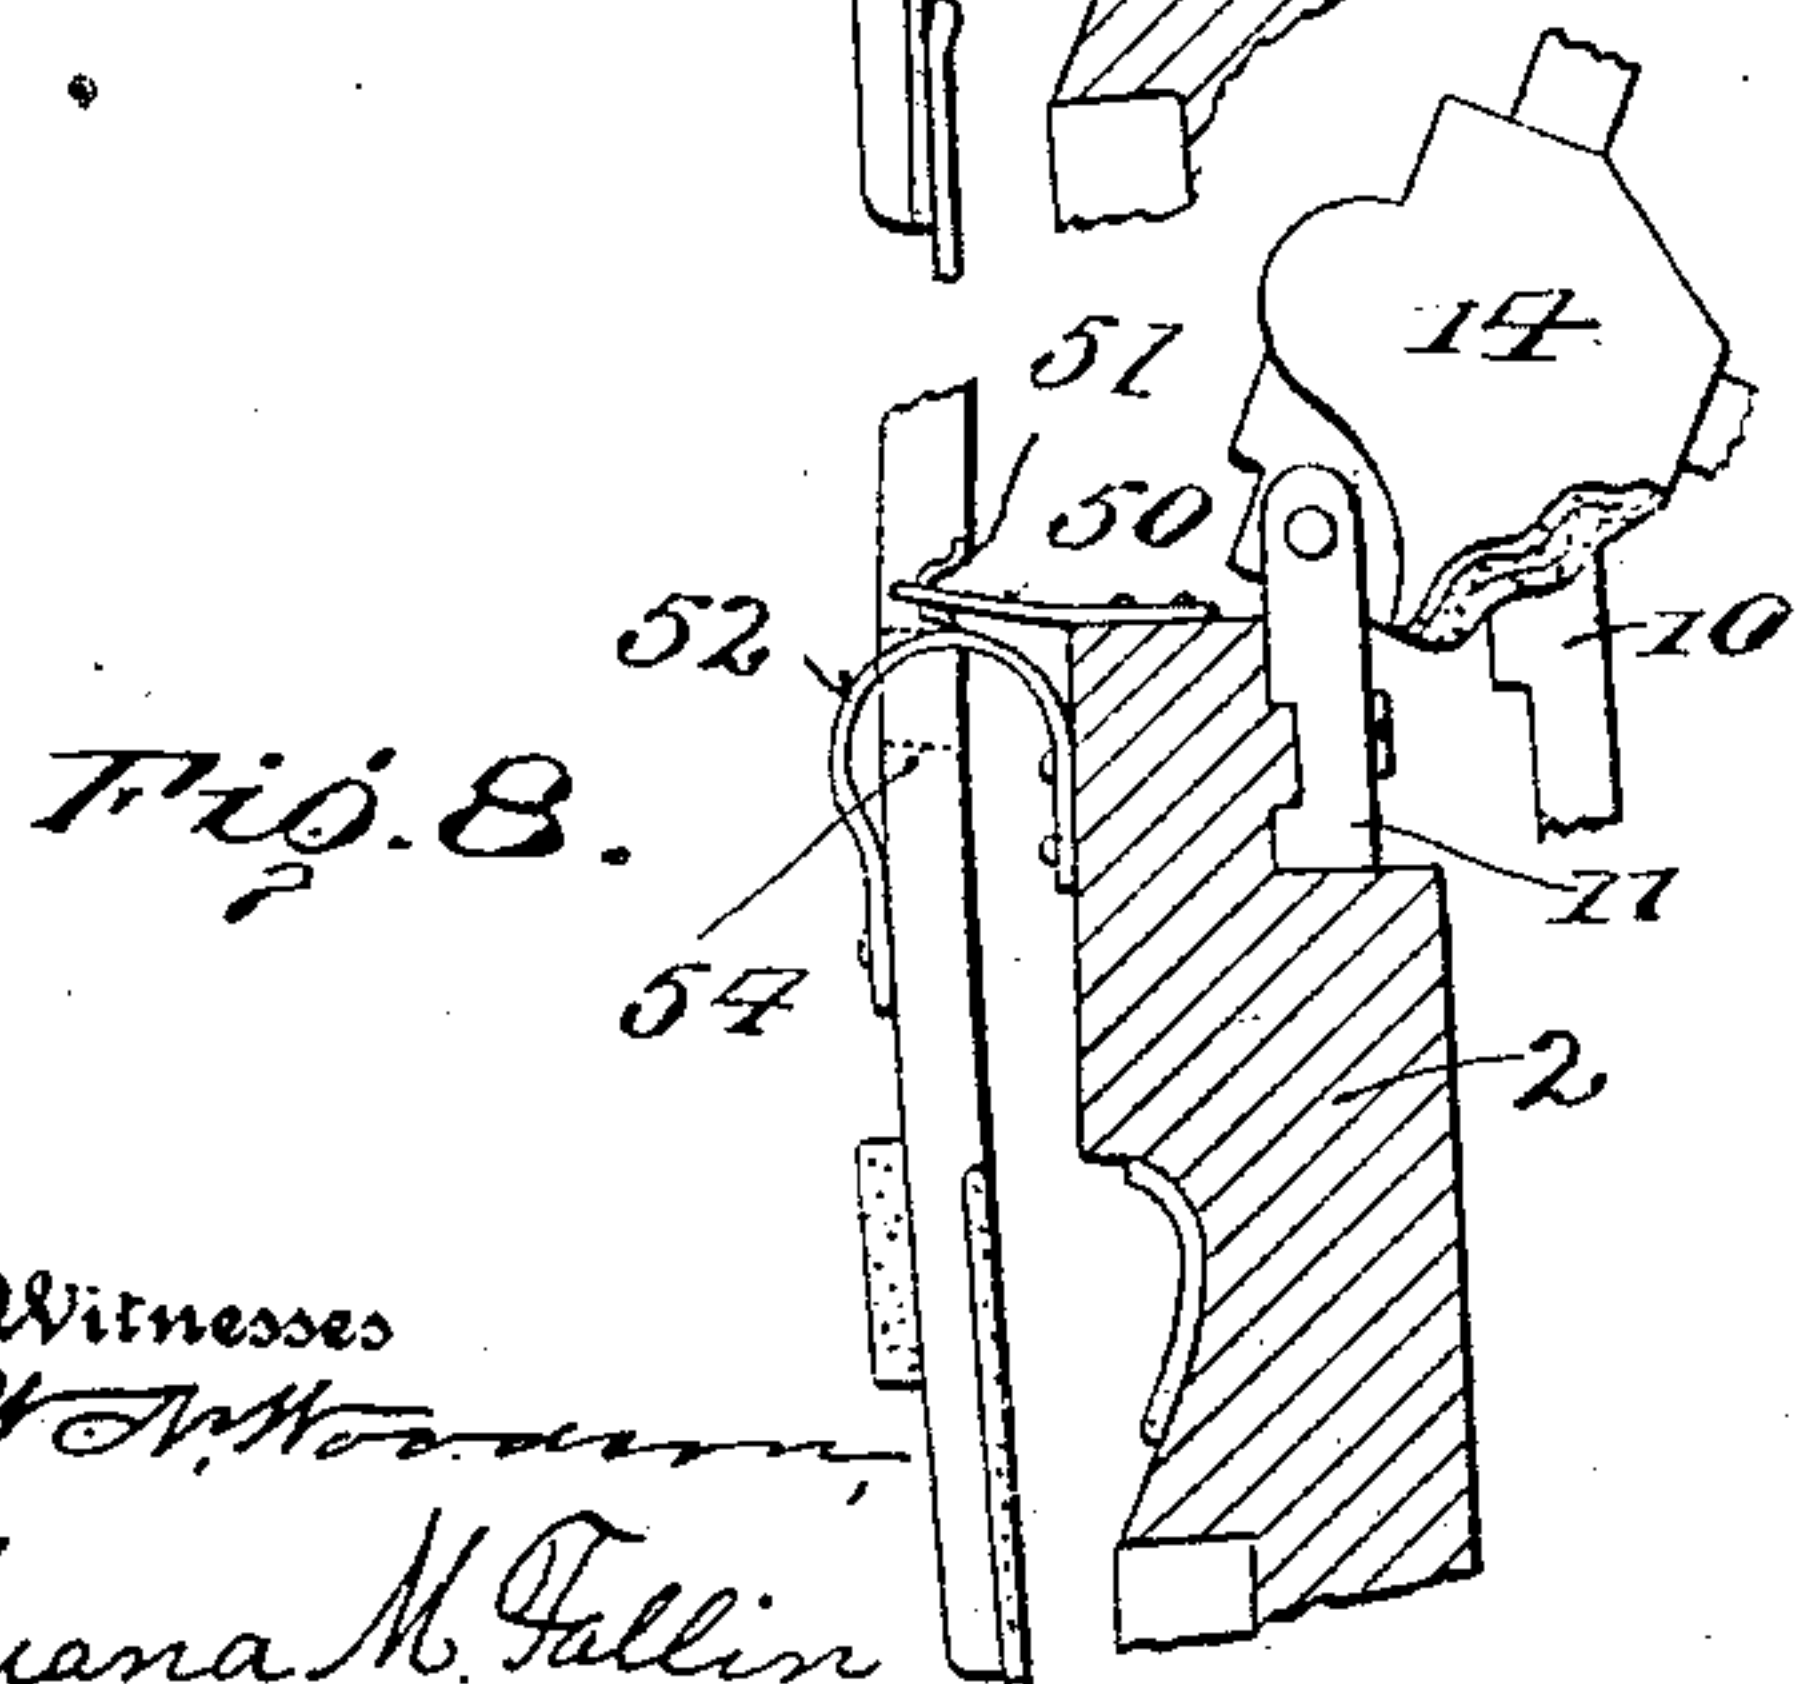 51
14
50
52
10
Fig. 8.
11
54
2
Witnesses
M. Fallin